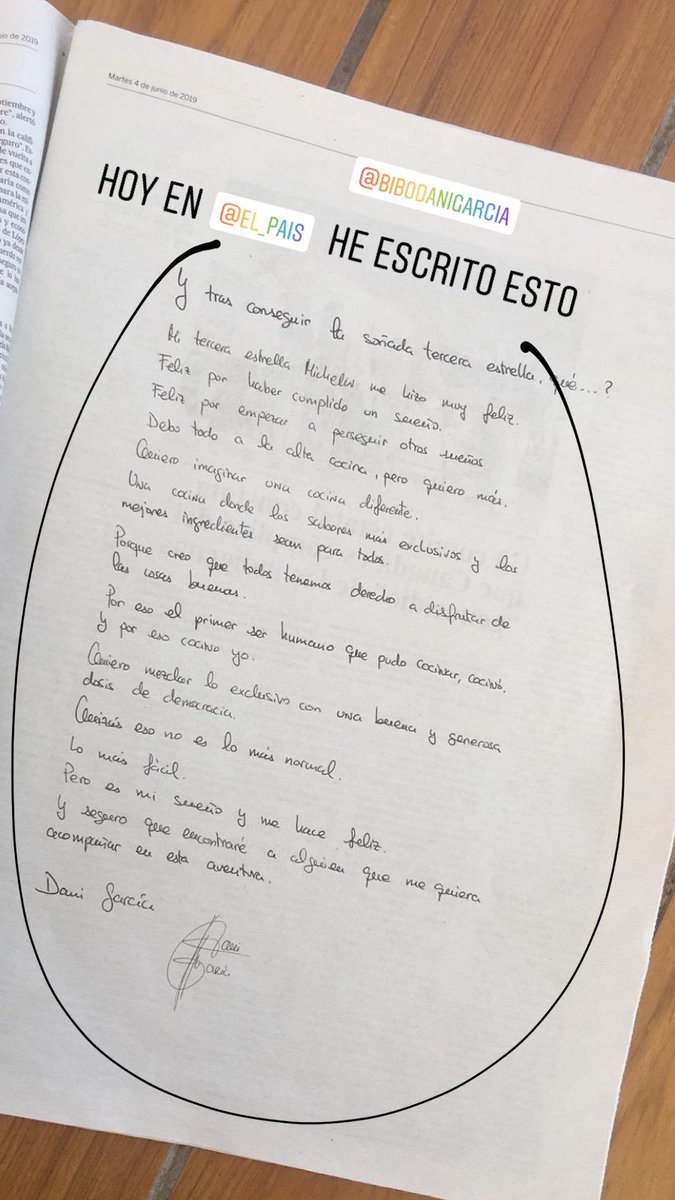 Martes 4 de junio de 2019
@BIBODANIGARCIA
HOY EN @EL_PAIS HE ESCRITO ESTO
Y tras conseguir la soñada tercera estrella, qué...?
Mi tercera estrella Michelin me hizo muy feliz.
Feliz por haber cumplido un sueño.
Feliz por empezar a perseguir otros sueños
Debo todo a la alta cocina, pero quiero más.
Quiero imaginar una cocina diferente.
Una cocina donde los sabores más exclusivos y los
mejores ingredientes sean para todos.
Porque creo que todos tenemos derecho a disfrutar de
las cosas buenas.
Por eso el primer ser humano que pudo cocinar, cocinó.
Y por eso cocino yo.
Quiero mezclar lo exclusivo con una buena y generosa
dosis de democracia.
Quizás eso no es lo más normal.
Lo más fácil.
Pero es mi sueño y me hace feliz.
Y seguro que encontraré a alguien que me quiera
acompañar en esta aventura.
Dani García
Dani
García